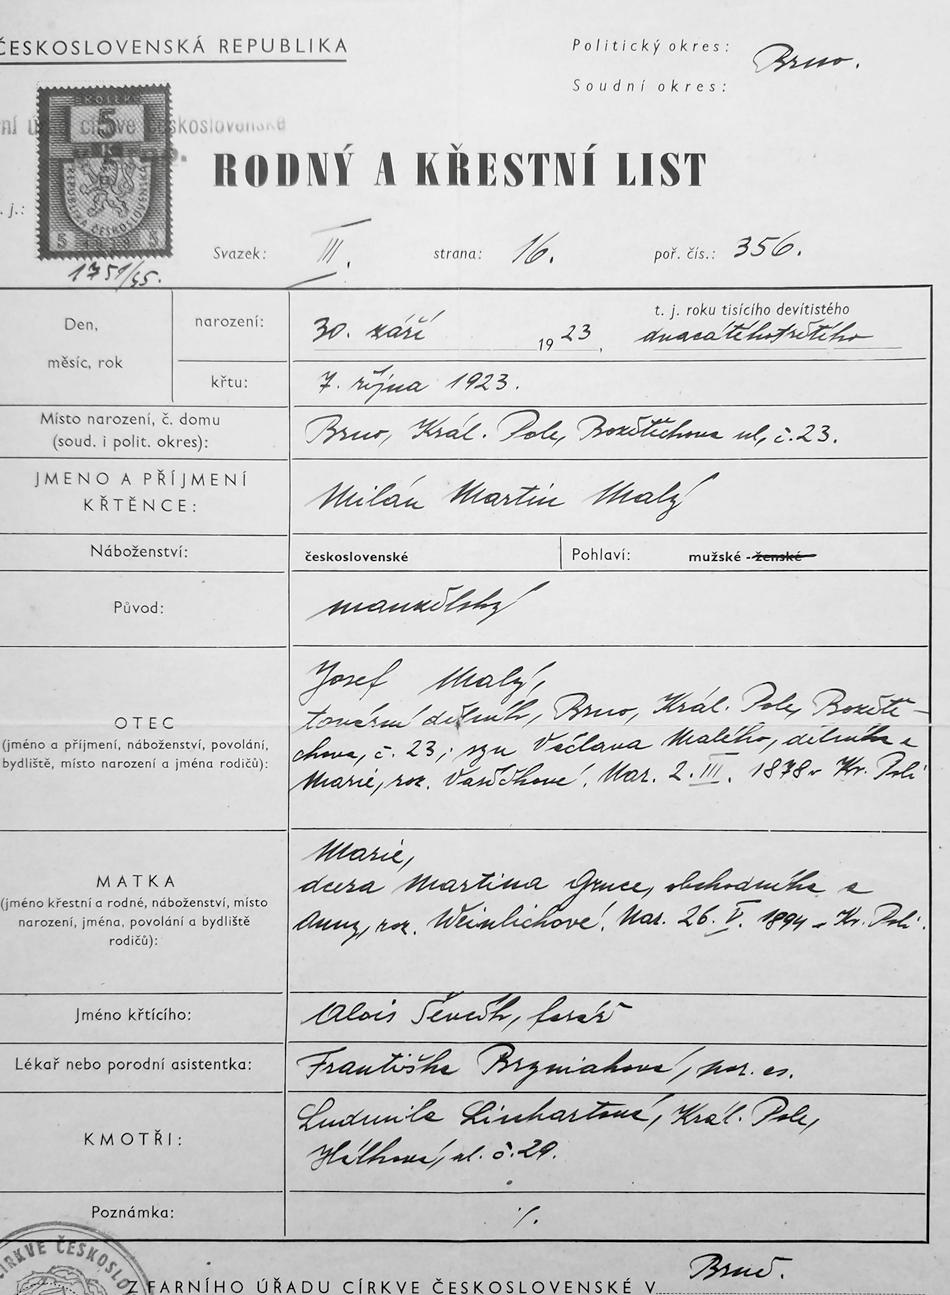 ČESKOSLOVENSKÁ REPUBLIKA
Politický okres:
Brno.
Soudní okres:
KOLEK
5
K
REPUBLIKA ČESKOSLOVENSKÁ
5 5
církve československé
RODNÝ A KŘESTNÍ LIST
j.:
1751/45.
Svazek: III. strana: 16. poř. čís.: 356.
Den,
měsíc, rok
narození:
30. září 1923,
t. j. roku tisícího devítistého
dvacátéhotřetího
křtu:
7. října 1923.
Místo narození, č. domu
(soud. i polit. okres):
Brno, Král. Pole, Božetěchova ul, č. 23.
JMENO A PŘÍJMENÍ
KŘTĚNCE:
Milán Martin Malý
Náboženství:
československé
Pohlaví: mužské - ženské
Původ:
manželský
OTEC
(jméno a příjmení, náboženství, povolání,
bydliště, místo narození a jména rodičů):
Josef Malý,
tovární dělník, Brno, Král. Pole, Božetě-
chova, č. 23, syn Václava Malého, dělníka a
Marie, roz. Nar. 2. III. 1878 v Kr. Poli
MATKA
(jméno křestní a rodné, náboženství, místo
narození, jména, povolání a bydliště
rodičů):
Marie,
dcera Martina obchodníka a
Anny, roz. Weinlichové. Nar. 26. V. 1894 v Kr. Poli.
Jméno křtícího:
Alois farář
Lékař nebo porodní asistentka:
Františka por. as.
KMOTŘI:
Ludmila Linhartová, Král. Pole,
Hálkova, ul. č. 29.
Poznámka:
·/.
CÍRKVE ČESKOSLOV
Z FARNÍHO ÚŘADU CÍRKVE ČESKOSLOVENSKÉ V Brně.